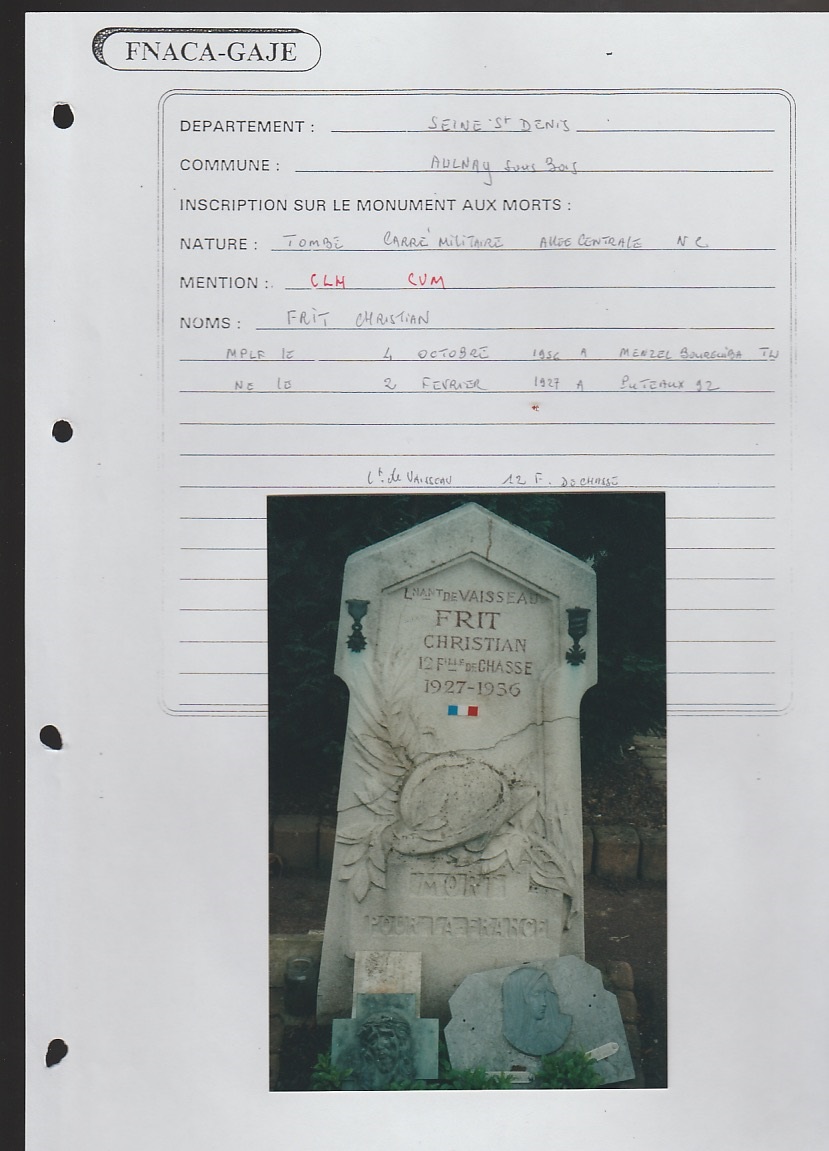 FNACA-GAJE
DEPARTEMENT : SEINE St DENIS
COMMUNE : AULNAY sous Bois
INSCRIPTION SUR LE MONUMENT AUX MORTS :
NATURE : TOMBE CARRÉ MILITAIRE ALLEE CENTRALE N C
MENTION : CLM CVM
NOMS : FRIT CHRISTIAN
MPLF le 4 OCTOBRE 1956 A MENZEL BOURGUIBA TN
NE le 2 FEVRIER 1927 A PUTEAUX 92
Lt de VAISSEAU 12 F. DE CHASSE
LNANT DE VAISSEAU
FRIT
CHRISTIAN
12 FILLE DE CHASSE
1927-1956
MORT
POUR LA FRANCE